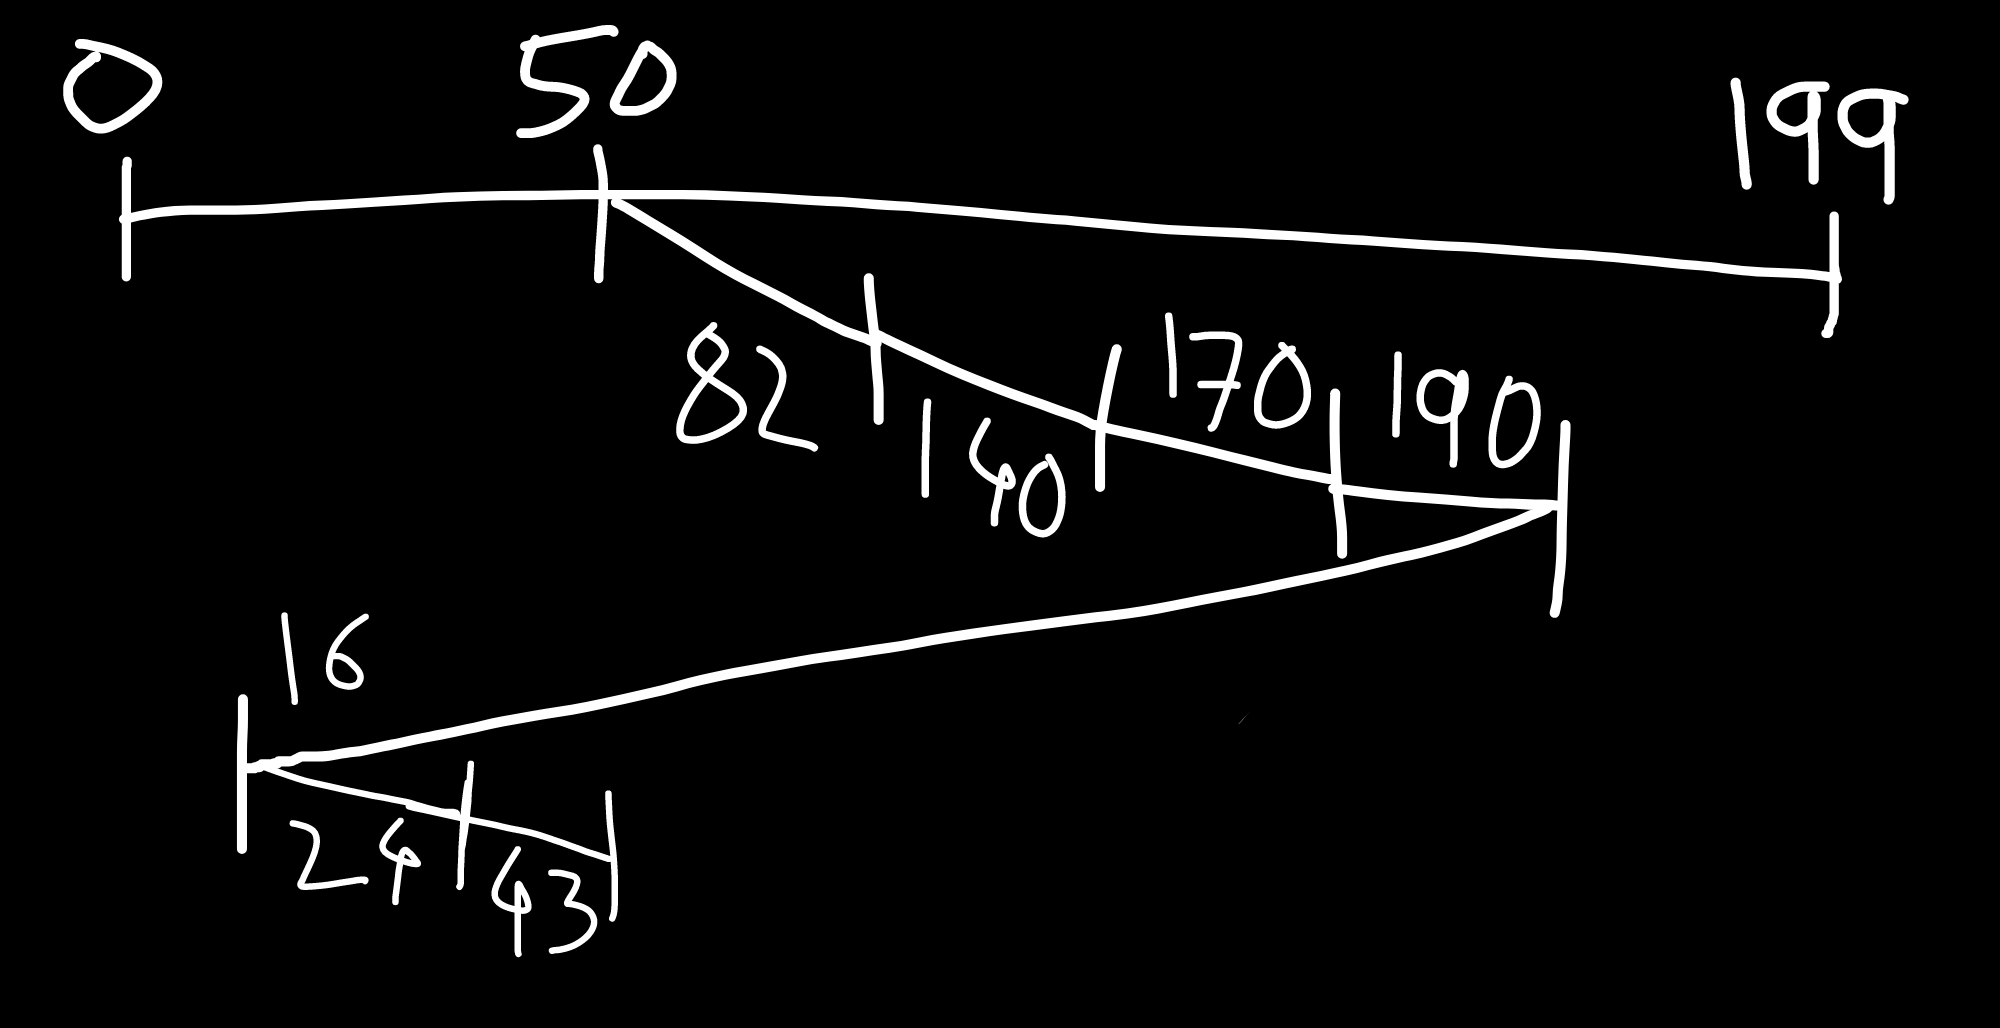 0 50 199
82 140 170 190
16
24 43